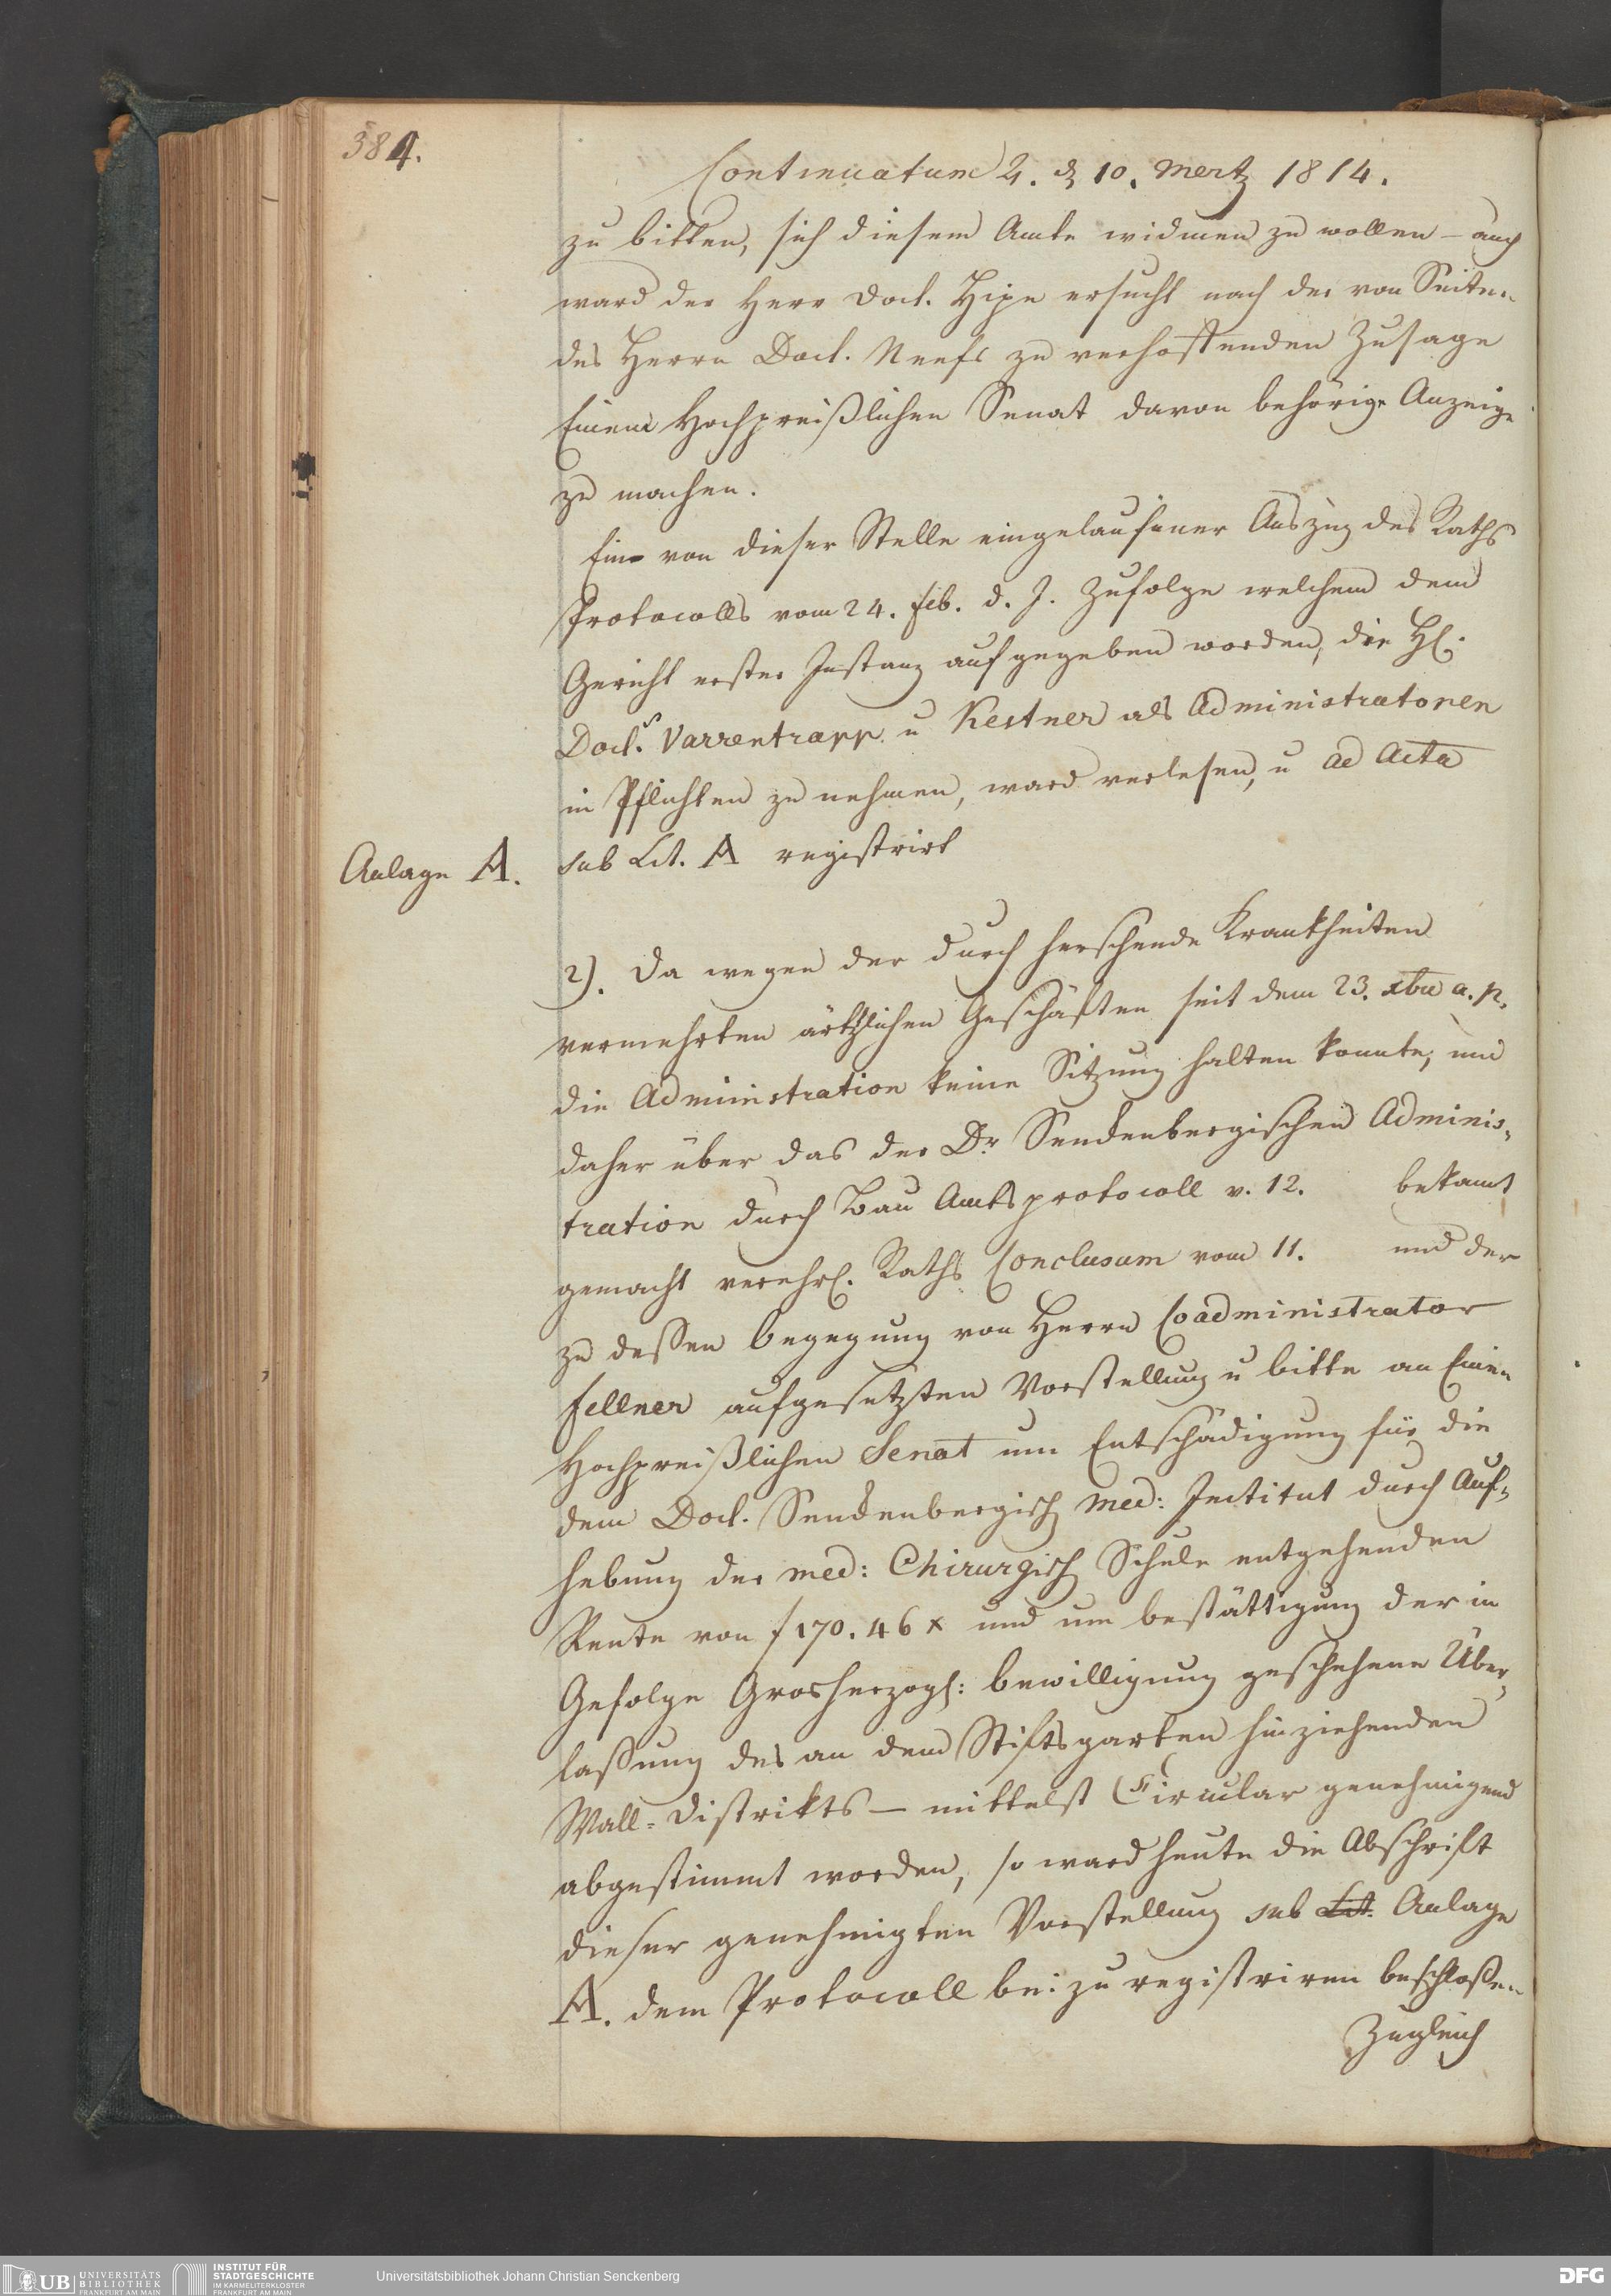 384.
Continuatum 4. d 10. Mertz 1814.
zu bitten, sich diesem Amte widmen zu wollen – auch
ward der Herr Doct. Hipe ersucht nach der von Seiten
des Herrn Doct. Neefs zu verhoffenden Zusage
Einem Hochpreißlichen Senat davon behörige Anzeige
zu machen.
Ein von dieser Stelle eingelaufener Auszug des Raths
Protocolls vom 24. feb. d. J. Zufolge welchem dem
Gericht erster Instanz aufgegeben worden, die H.
Doct.s Varrentrapp u Kestner als Administratoren
in Pflichten zu nehmen, ward verlesen, u ad Acta
Anlage A. sub Lit. A registrirt
2). Da wegen der durch herschende Krankheiten
vermehrten ärtzlichen Geschäften seit dem 23. xbre a. p.
die Administration keine Sitzung halten konnte, und
daher über das der Dr Senckenbergischen Adminis-
tration durch Bau Amts protocoll v. 12. bekannt
gemacht verehrl. Raths Conclusum vom 11. und der
zu dessen Begegnung von Herrn Coadministrator
Fellner aufgesetzten Vorstellung u bitte an Einen
Hochpreißlichen Senat um Entschädigung für die
dem Doct. Senckenbergisch med: Institut durch Auf-
hebung der med: Chirurgisch Schule entgehenden
Rente von f 170. 46 x und um bestättigung der in
Gefolge Grosherzogl: bewilligung geschehene Über-
lassung des an dem Stiftsgarten hinziehenden
Wall-Distrikts – mittelst Circular genehmigend
abgestimmt worden, so ward heute die Abschrift
dieser genehmigten Vorstellung sub Lit. Anlage
A. dem Protocoll bei zu registriren beschloßen
Zugleich
UB UNIVERSITÄTS
BIBLIOTHEK
FRANKFURT AM MAIN
INSTITUT FÜR
STADTGESCHICHTE
IM KARMELITERKLOSTER
FRANKFURT AM MAIN
Universitätsbibliothek Johann Christian Senckenberg
DFG